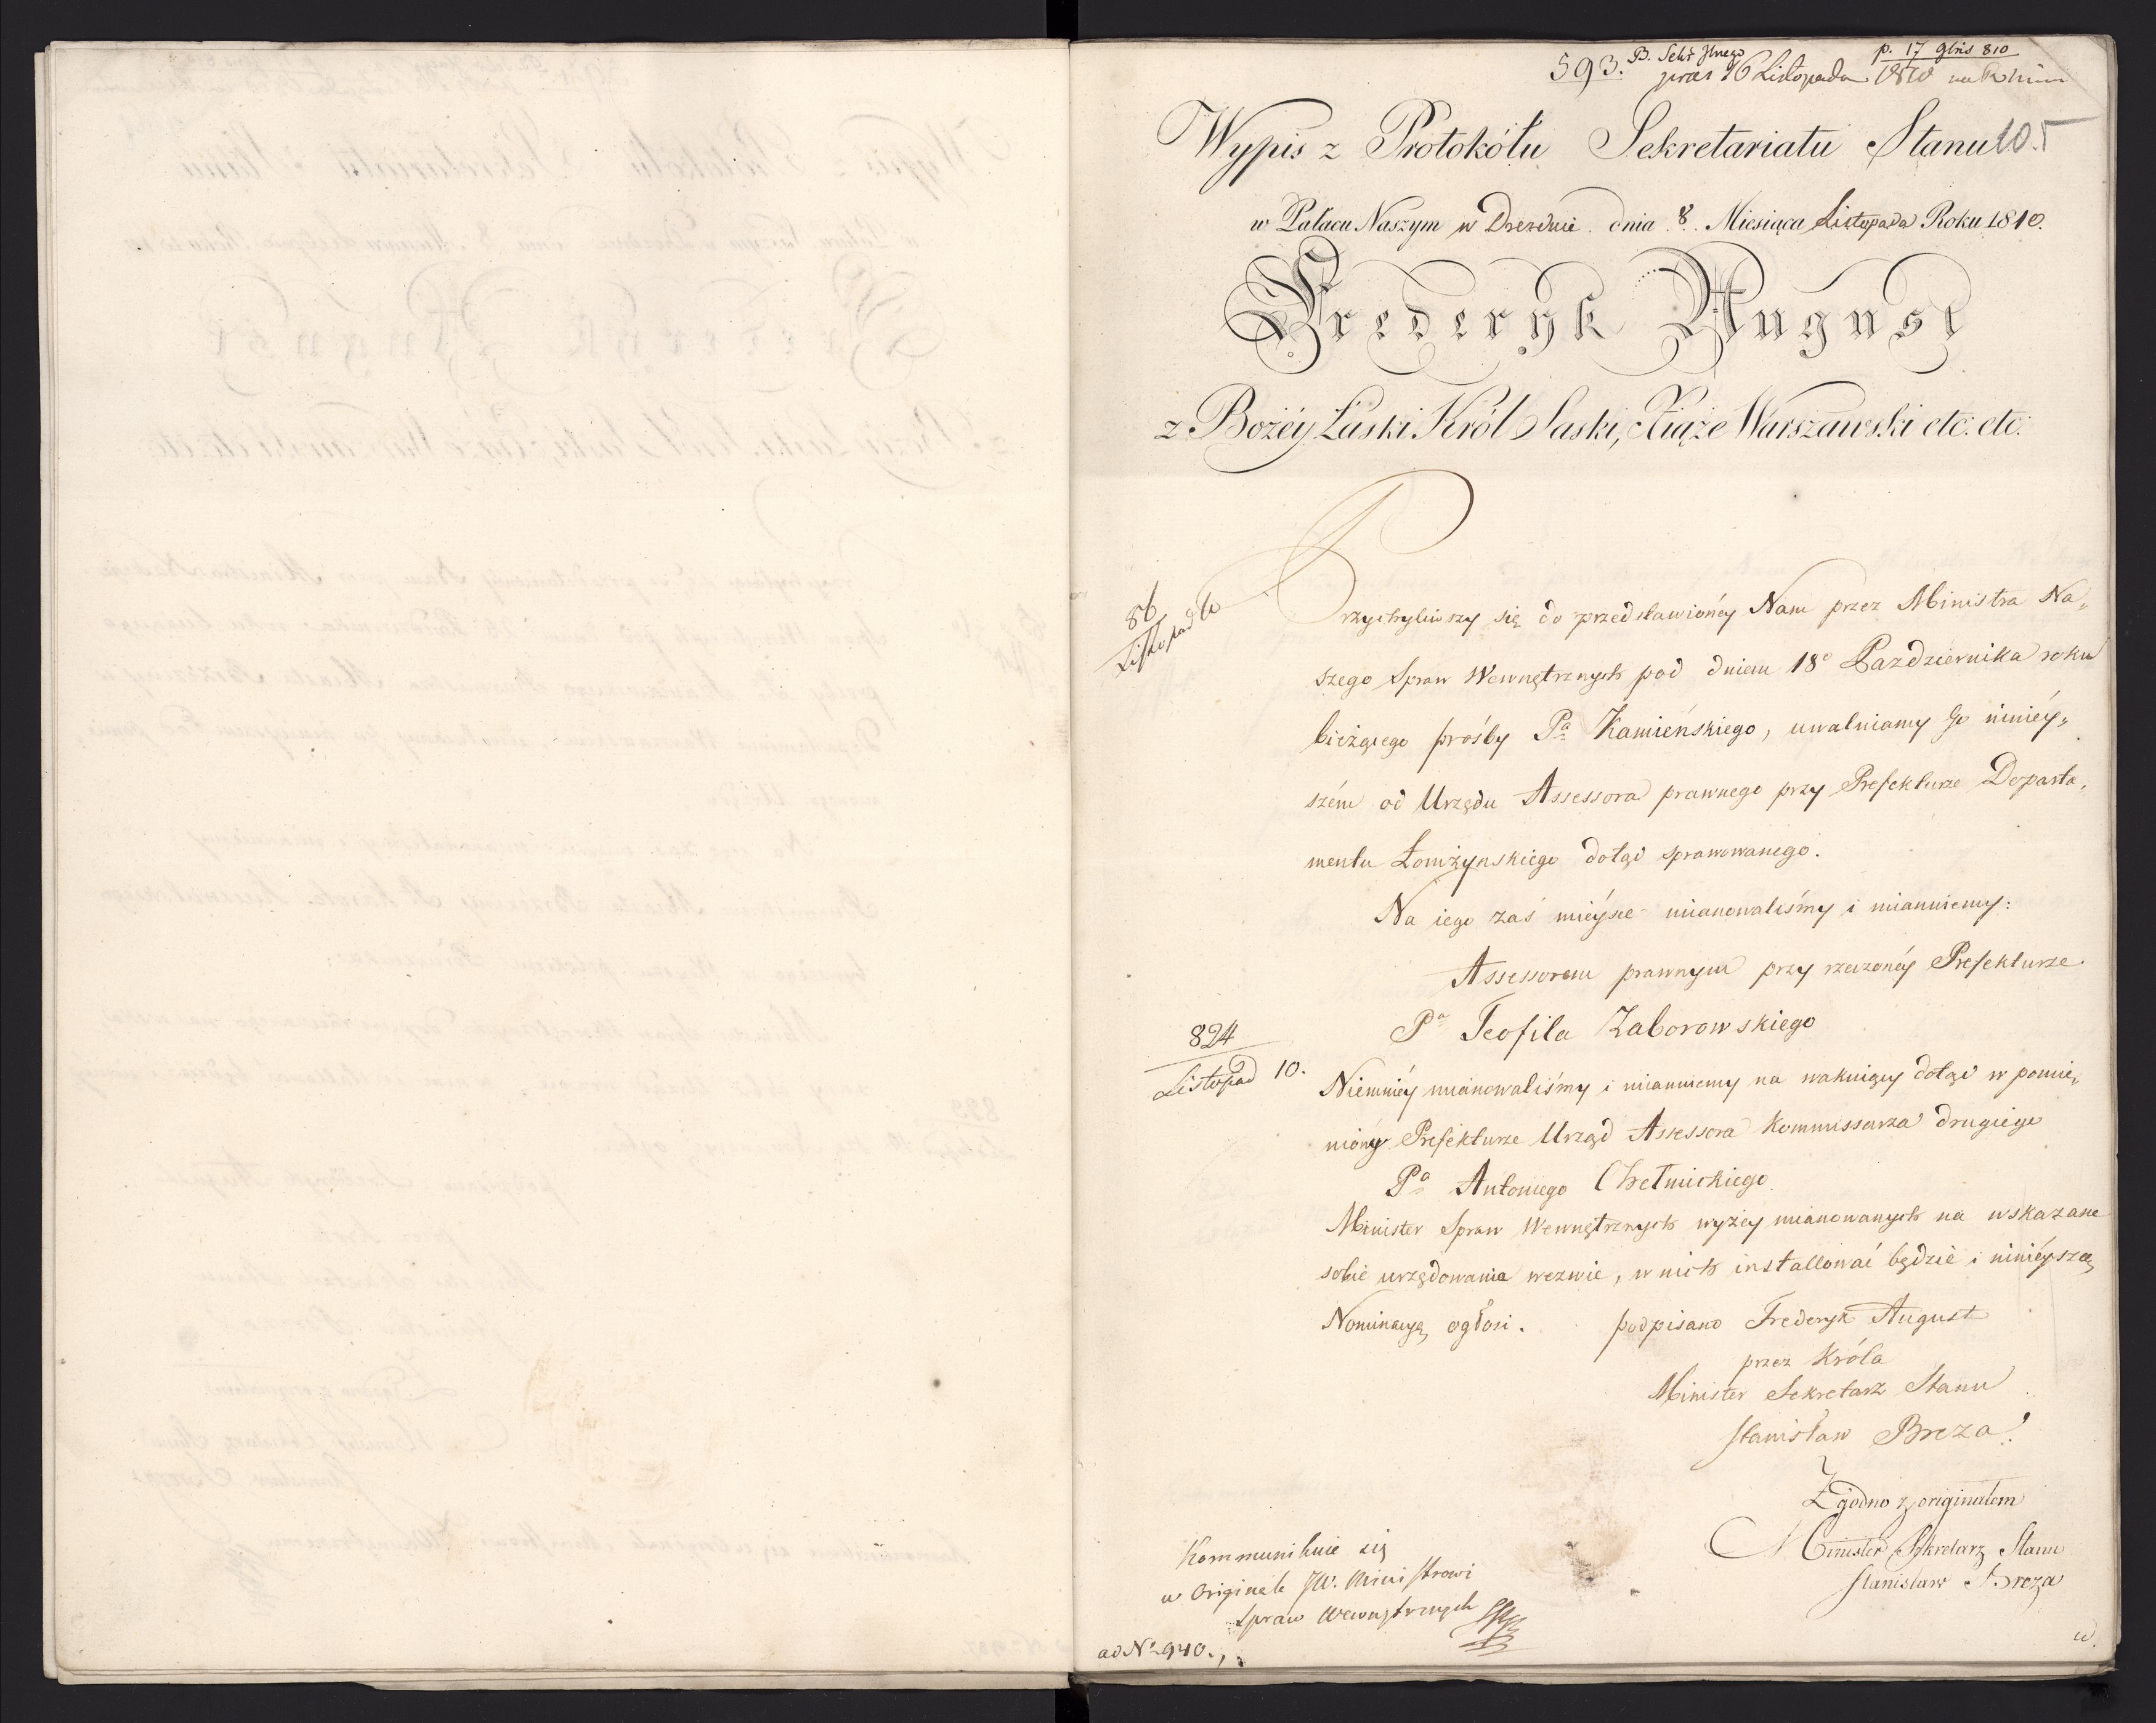 593. B. Sekr Jlnego p. 17 9bris 810
praes 16 Listopada 1810
Wypis z Protokółu Sekretariatu Stanu 105
w Pałacu Naszym w Dreznie dnia 8. Miesiąca Listopada Roku 1810.
Frederyk August
z Bożéy Łaski Król Saski, Xiąże Warszawski etc: etc:
86
Listopad
Przychyliwszy się do przedstawionéy Nam przez Ministra Na„
szego Spraw Wewnętrznych pod dniem 18º Pazdziernika roku
bieżącego prośby Pª Kamieńskiego, uwalniamy Go niniéy„
szém od Urzędu Assessora prawnego przy Prefekturze Departa„
mentu Łomżynskiego dotąd sprawowanego.
Na iego zaś mieysce mianowaliśmy i mianuiemy:
Assessorem prawnym przy rzeczonéy Prefekturze
Pª Teofila Zaborowskiego
824
Listopad 10.
Niemniéy mianowaliśmy i mianuiemy na wakuiący dotąd w pomie„
nionéy Prefekturze Urząd Assessora Kommissarza drugiego
Pª Antoniego Chełmickiego.
Minister Spraw Wewnętrznych wyżey mianowanych na wskazane
sobie urzędowania wezwie, w nich installować będzie i ninieyszą
Nominacyą ogłosi. podpisano Frederyk August
przez Króla
Minister Sekretarz Stanu
Stanisław Breza.
Zgodno z originałem
Minister Sekretarz Stanu
Stanisław Breza
Kommunikuie się
w Originale JW. Ministrowi
Spraw Wewnętrznych
ad Nº 940.